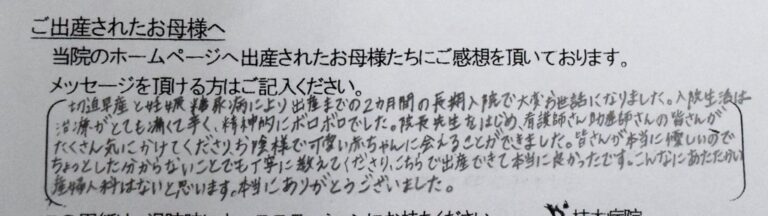 ご出産されたお母様へ
当院のホームページへ出産されたお母様たちにご感想を頂いております。
メッセージを頂ける方はご記入ください。
切迫早産と妊娠糖尿病により出産までの2カ月間の長期入院で大変お世話になりました。入院生活は
治療がとても痛くて辛く、精神的にボロボロでした。院長先生をはじめ、看護師さん助産師さんの皆さんが
たくさん気にかけてくださり、お陰様で可愛い赤ちゃんに会えることができました。皆さんが本当に優しいので
ちょっとした分からないことでも丁寧に教えてくださり、こちらで出産できて本当に良かったです。こんなにあたたかい
産婦人科はないと思います。本当にありがとうございました。